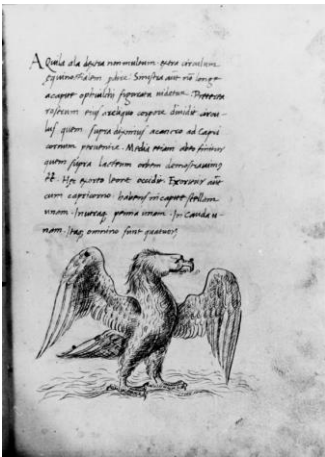 Aquila ala dextra non multum extra circulum
equinoctialem patet. Sinistra aut nō longe
a caput ophiulchi figuram uidetur. Preterea
rostrum eius a reliquo corpore diuidit circu-
lus quem supra diximus a cancro ad capri
cornum peruenire. Media etiam abte finitur
quem supra lacteum orbem demostrauimus
Hec exorto leone occidit. Exoritur aut
cum capricorno habens in capite stellam
unam. In utraq penna unam. In cauda u-
nam. Itaq omnino sunt quatuor